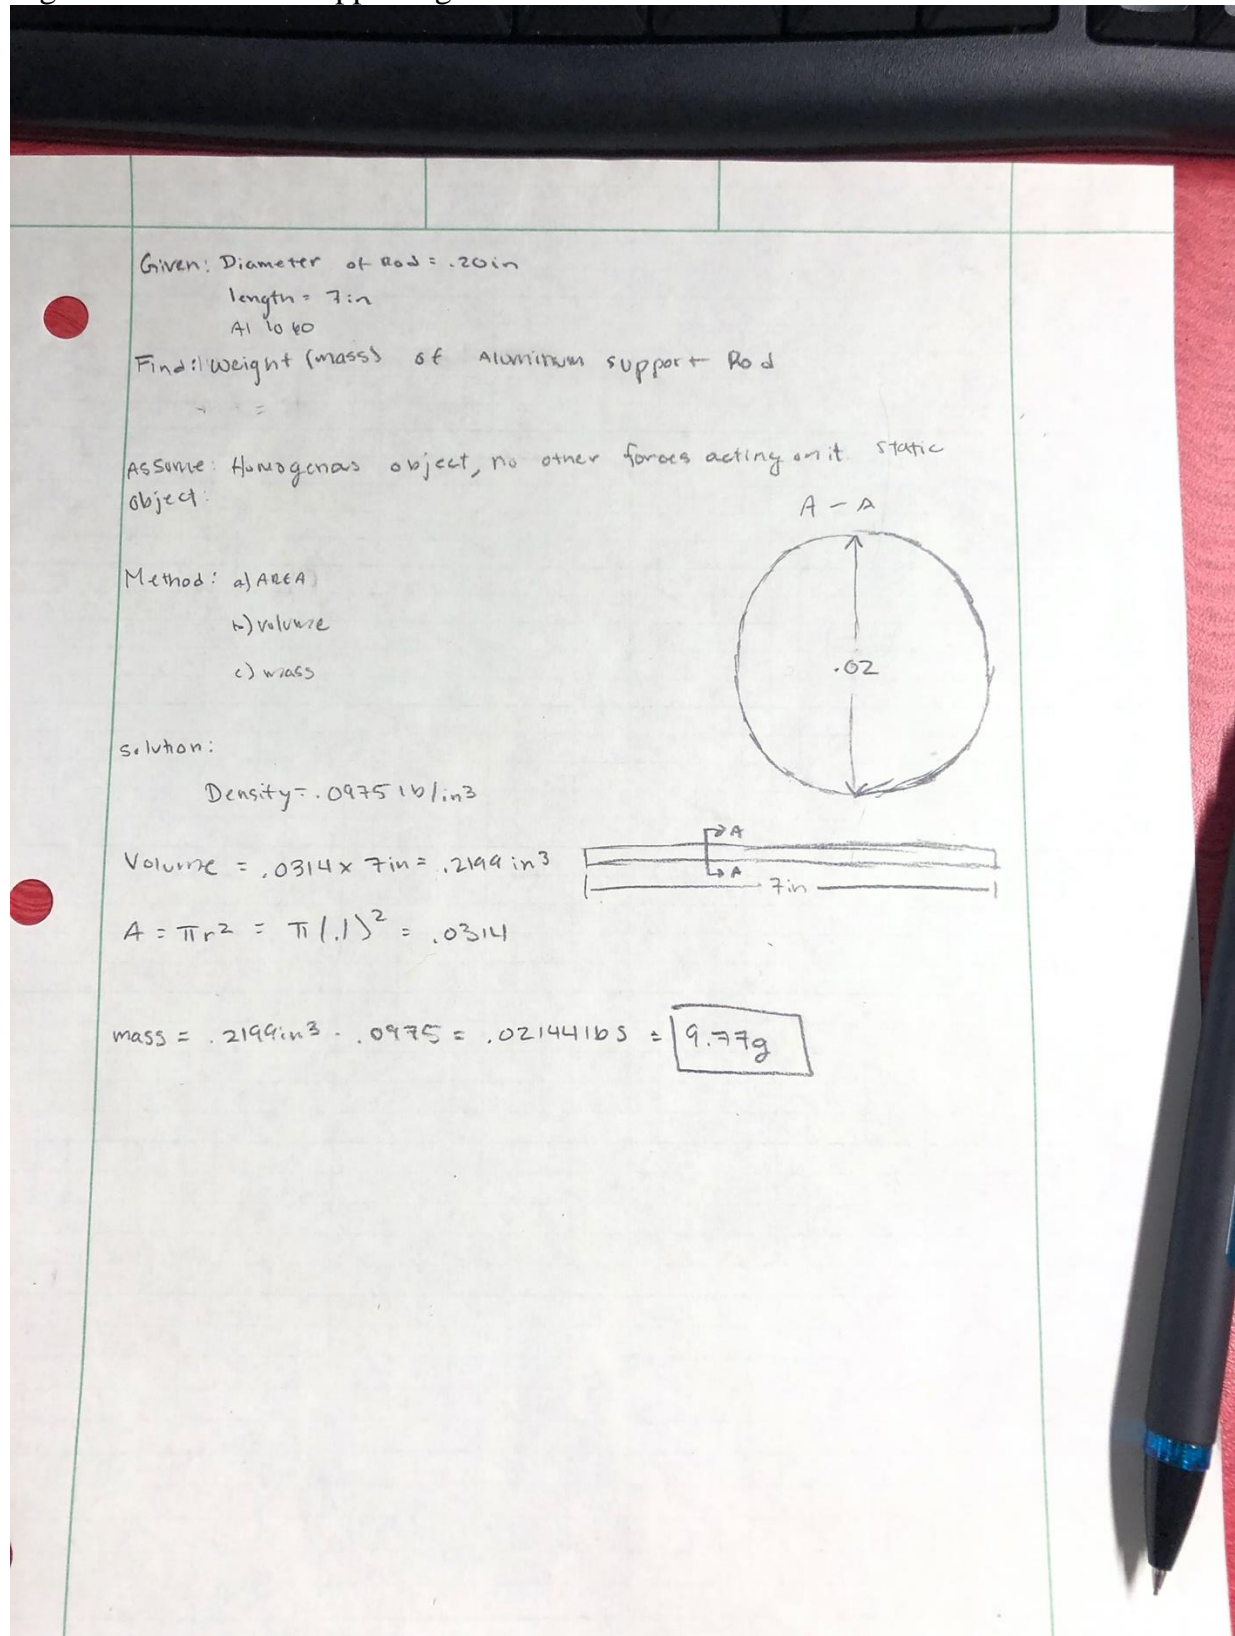 Given: Diameter of Rod = .20in
length = 7in
Al 1060
Find: Weight (mass) of Aluminum support Rod
=
Assume: Homogenas object, no other forces acting on it. static
object:
A - A
Method: a) AREA
b) volume
c) mass
.02
Solution:
Density = .0975 lb/in3
Volume = .0314 x 7in = .2199 in3
A
A
7in
A = πr2 = π(.1)2 = .0314
mass = .2199in3 · .0975 = .02144lbs = 9.77g